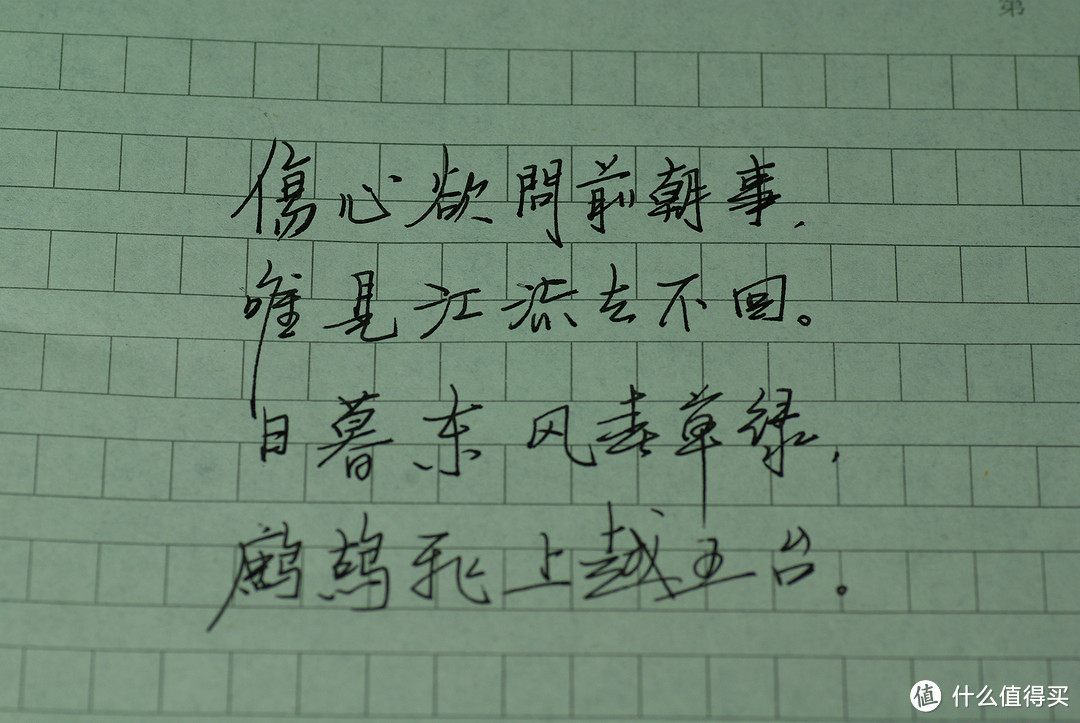 第
傷心欲問前朝事,
唯見江流去不回。
日暮东风春草緑,
鹧鸪飛上越王台。
值 什么值得买